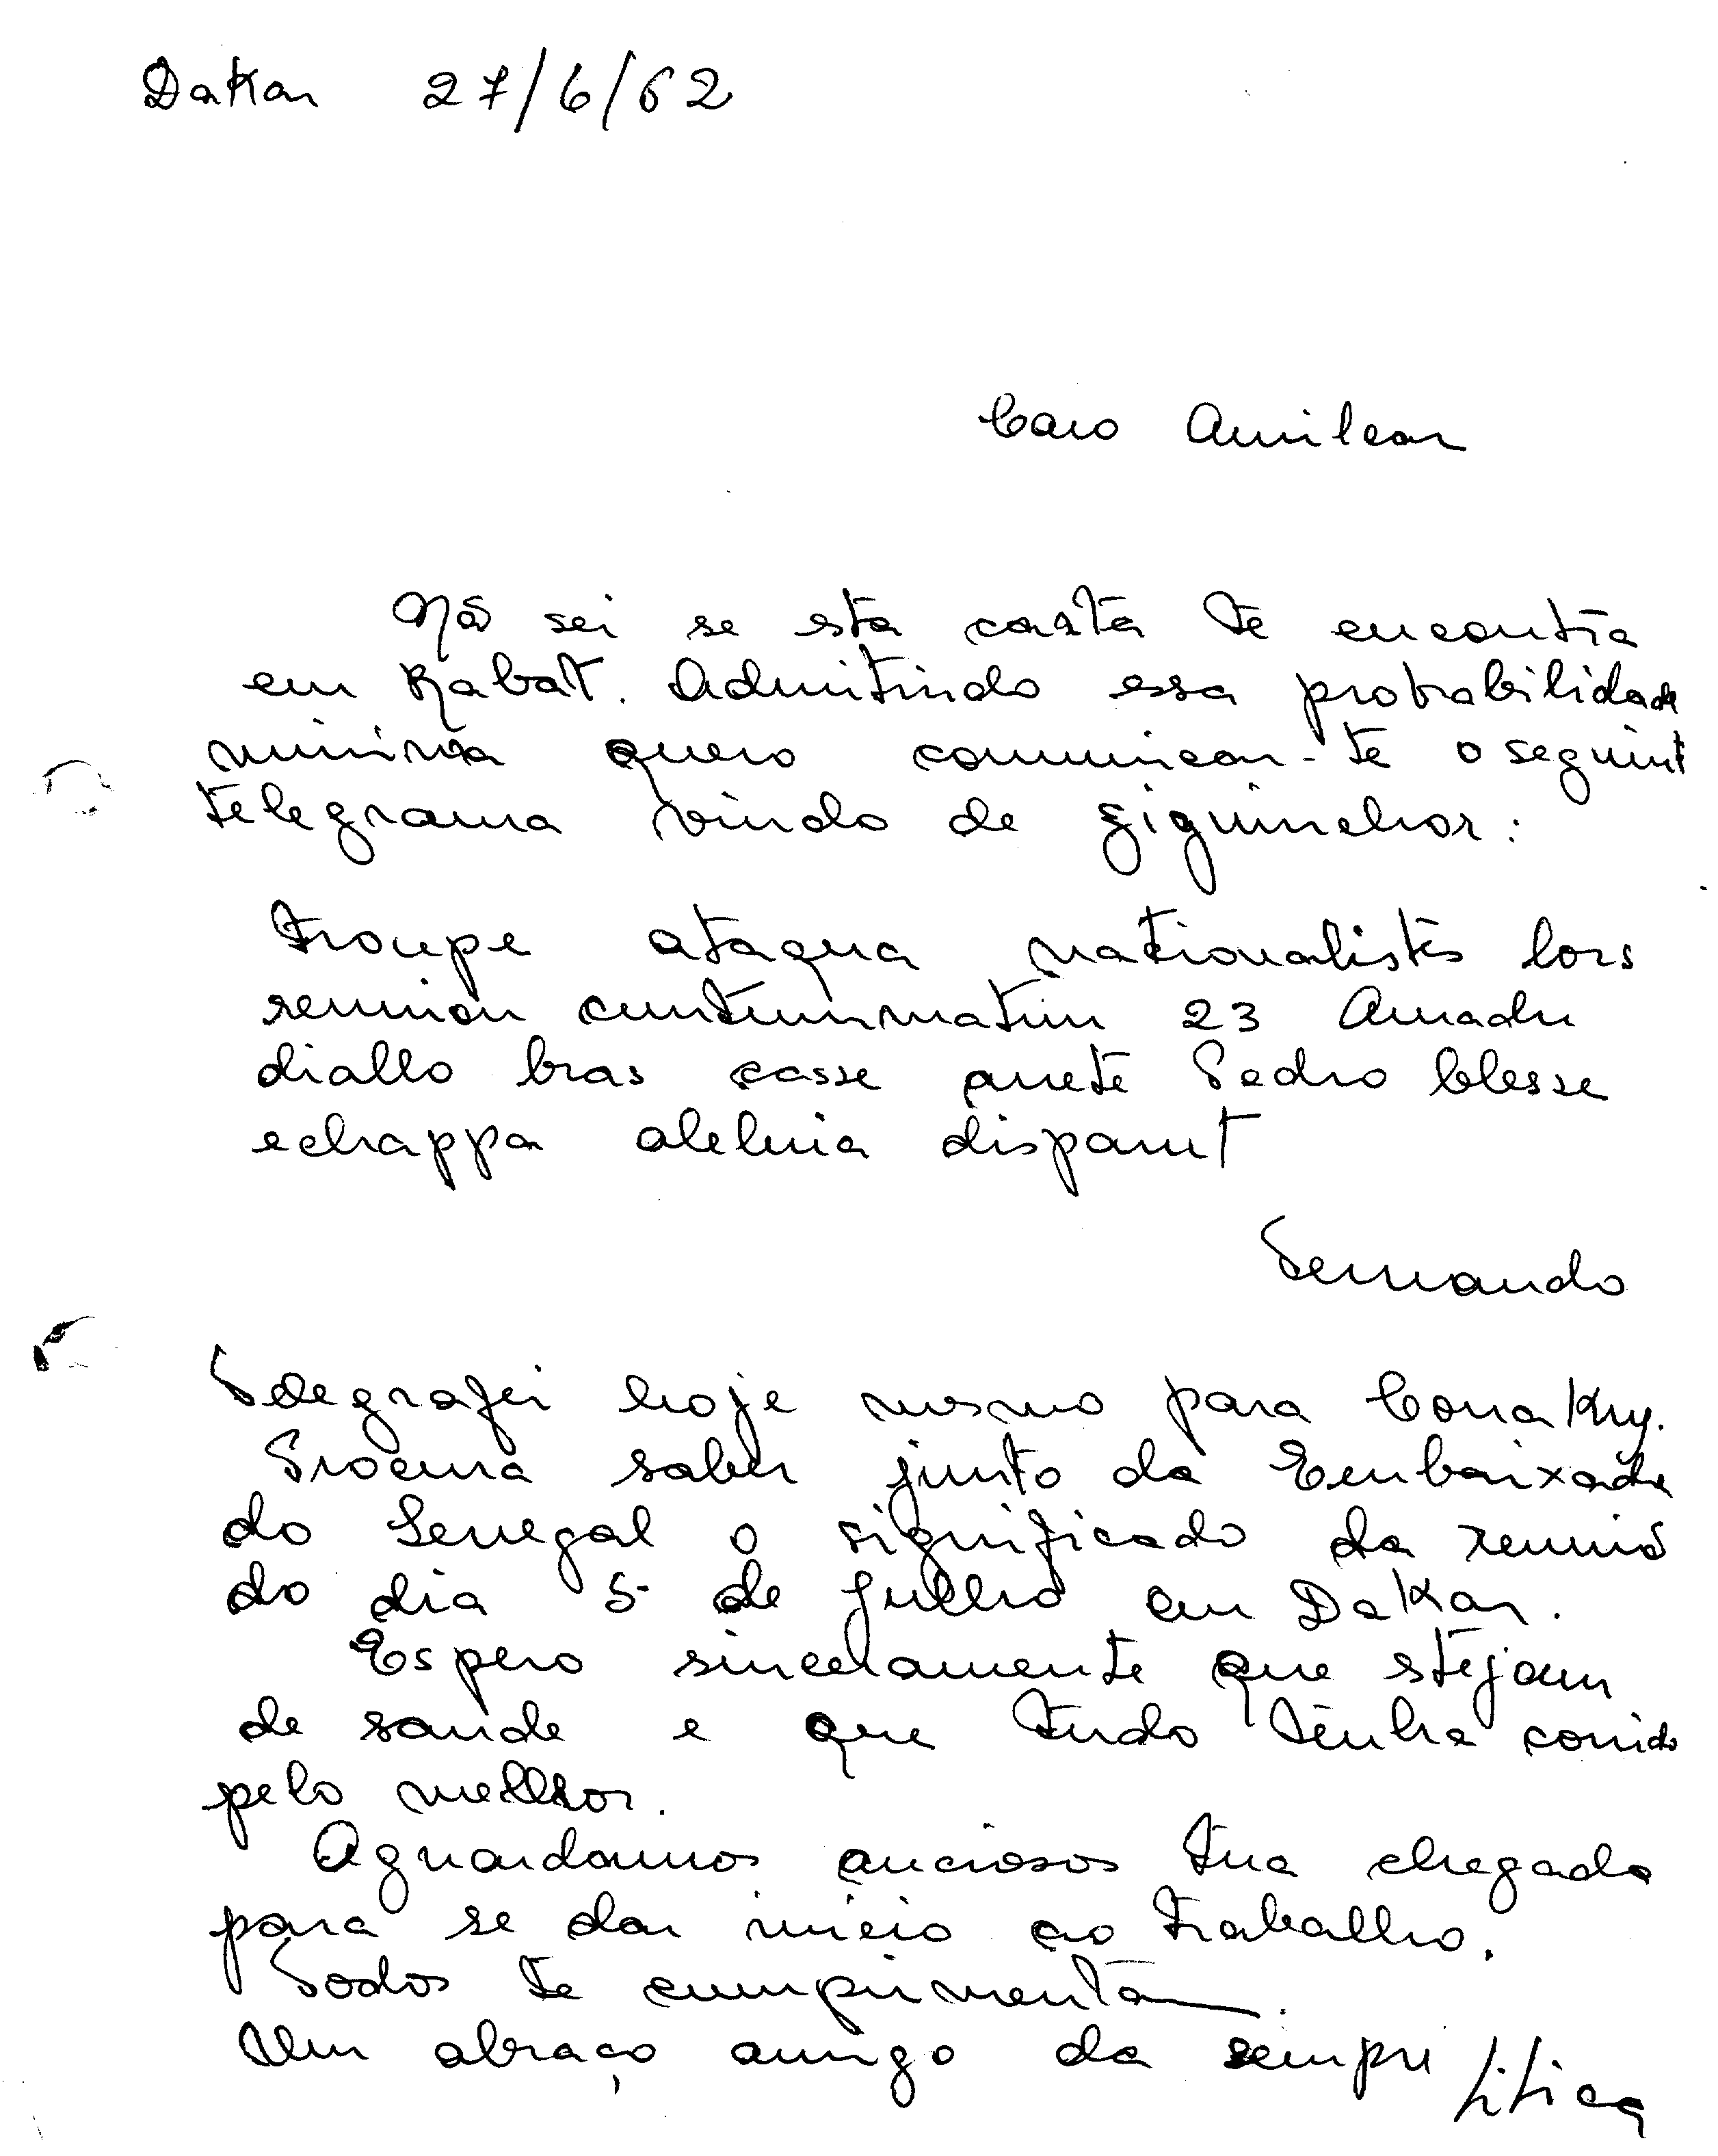 Dakar 27/6/62
Caro Amilcar
Não sei se esta carta te encontra
em Rabat. Admitindo essa probabilidade
minima quero comunicar-te o seguint
telegrama vindo de Ziguinchor:
Troupe ataqua nationalistes lors
reunion 23 Amadu
diallo bras casse arrete Pedro blesse
echappa aleluia disparut
Fernando
Telegrafei hoje mesmo para Conakry.
Procura saber junto da Embaixada
do Senegal o significado da reunião
do dia 5 de Julho em Dakar.
Espero sinceramente que stejam
de saude e que tudo tenha corrido
pelo melhor.
Aguardamos anciosos tua chegada
para se dar inicio ao trabalho.
Todos te cumprimentam.
Um abraço amigo da sempre Lilica